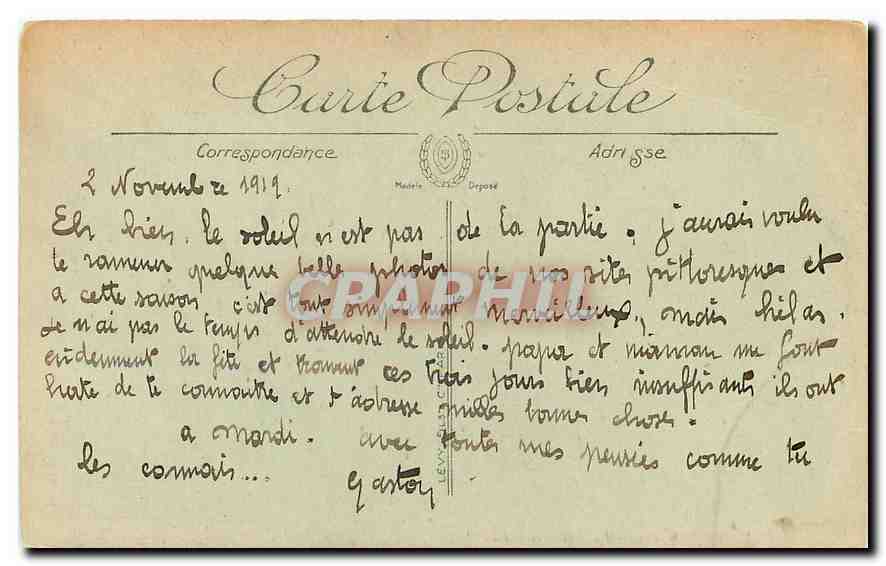 Carte Postale
Correspondance
Adresse
Modèle Déposé
2 Novembre 1919.
Eh bien, le soleil n'est pas de la partie, j'aurais voulu
te ramener quelque belle photos de nos sites pittoresques et
a cette saison c'est tout simplement merveilleux, mais hélas.
Je n'ai pas le temps d'attendre le soleil. papa et maman me font
evidemment la fête et trouvent ces trois jours bien insuffisants ils ont
hate de te connaitre et t'adresse milles bonnes choses.
a mardi. avec toutes mes pensées comme tu
les connais...
Gaston
CPAPHIL